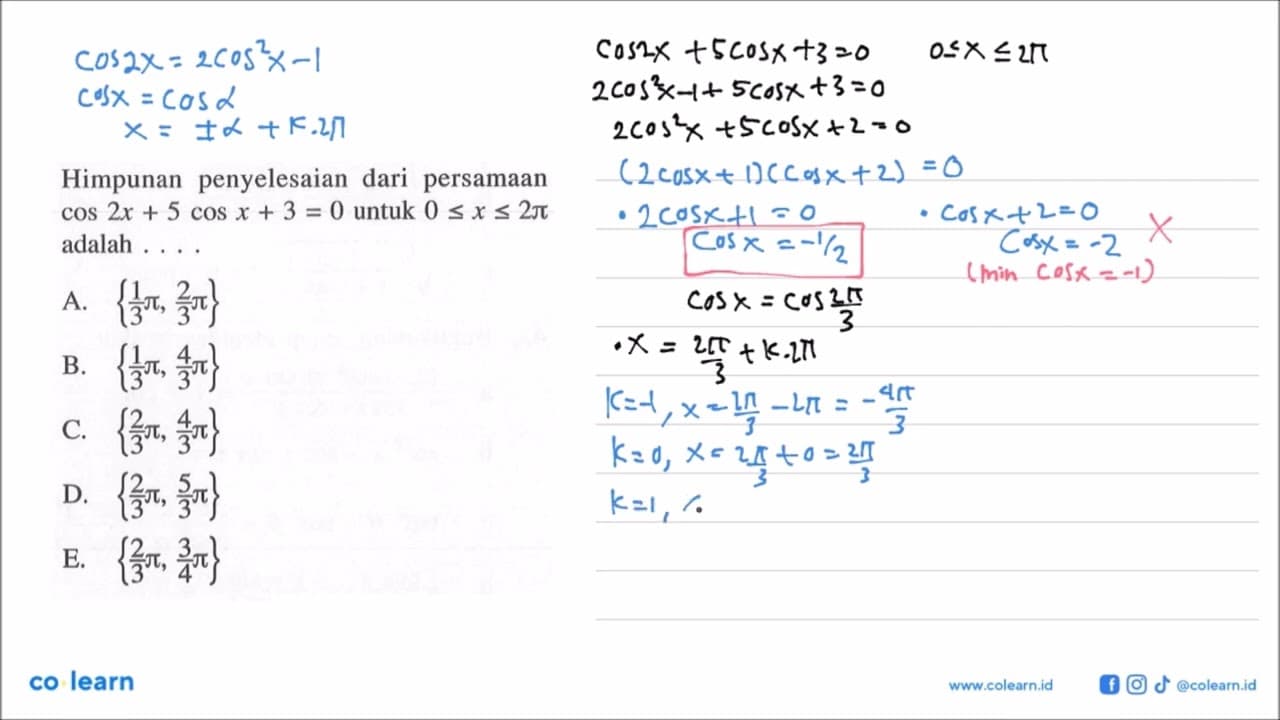 cos2x = 2cos²x - 1
cosx = cosα
x = ±α + k.2π
Himpunan penyelesaian dari persamaan
cos 2x + 5 cos x + 3 = 0 untuk 0 ≤ x ≤ 2π
adalah . . . .
A. {1/3 π, 2/3 π}
B. {1/3 π, 4/3 π}
C. {2/3 π, 4/3 π}
D. {2/3 π, 5/3 π}
E. {2/3 π, 3/4 π}
cos2x + 5cosx + 3 = 0 0 ≤ x ≤ 2π
2cos²x - 1 + 5cosx + 3 = 0
2cos²x + 5cosx + 2 = 0
(2cosx + 1)(cosx + 2) = 0
• 2cosx + 1 = 0 • cosx + 2 = 0
cosx = -1/2 cosx = -2 X
(min cosx = -1)
cosx = cos 2π/3
• x = 2π/3 + k.2π
k=-1, x = 2π/3 - 2π = -4π/3
k=0, x = 2π/3 + 0 = 2π/3
k=1,
co learn
www.colearn.id @colearn.id